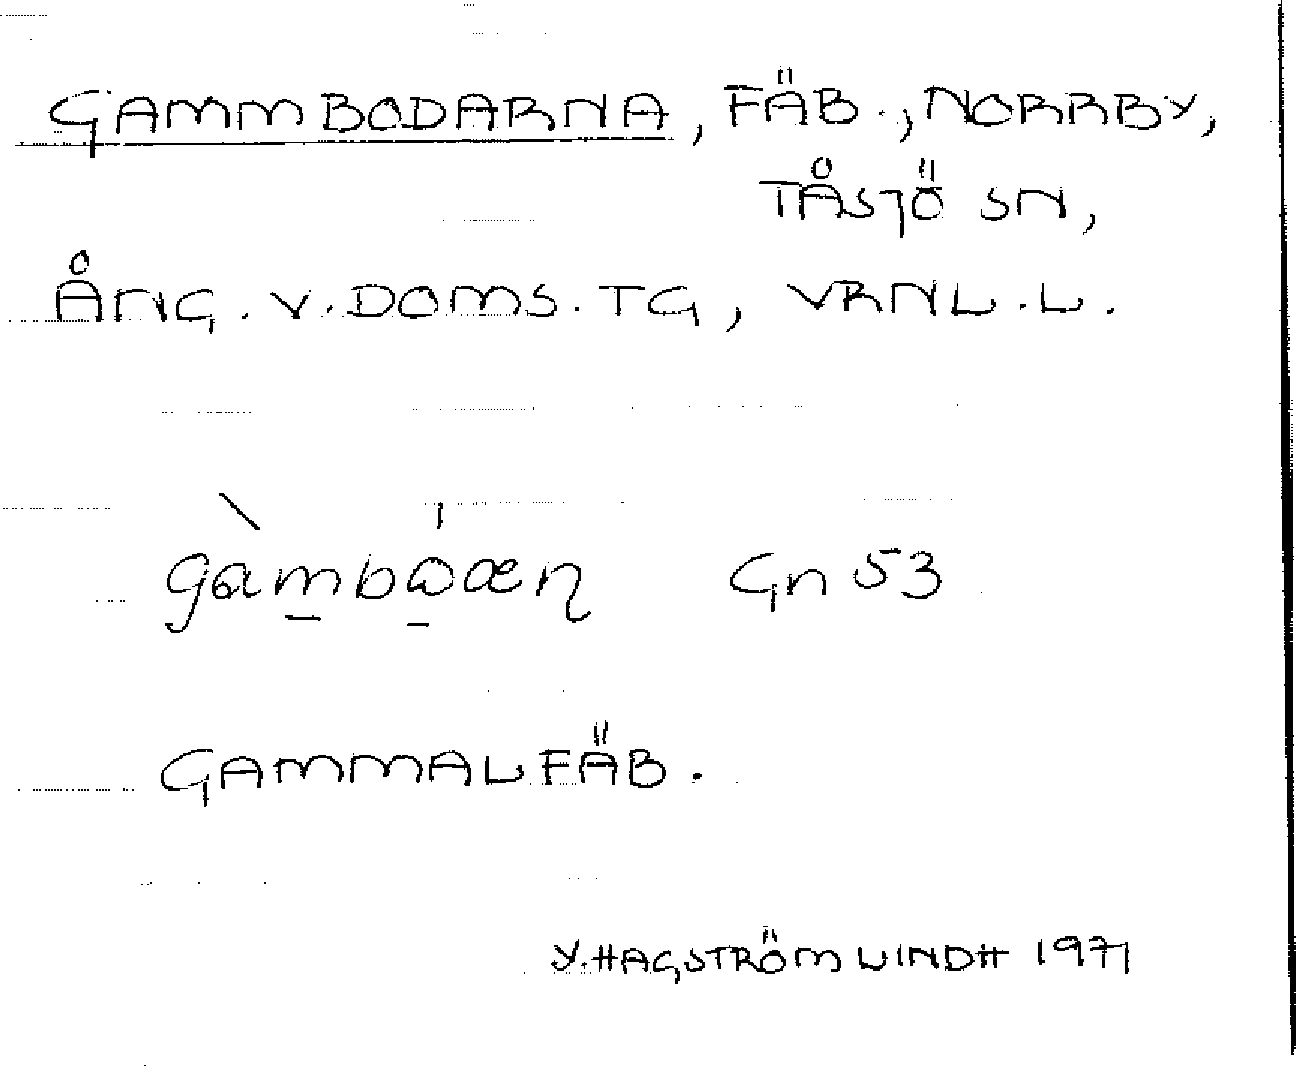 GAMMBODARNA, FÄB., NORRBY,
TÅSJÖ SN,
ÅNG. V. DOMS. TG, VRNL. L.
gàm̱bώ̱æɳ Gn 53
GAMMAL FÄB.
Y. HAGSTRÖM LINDH 1971